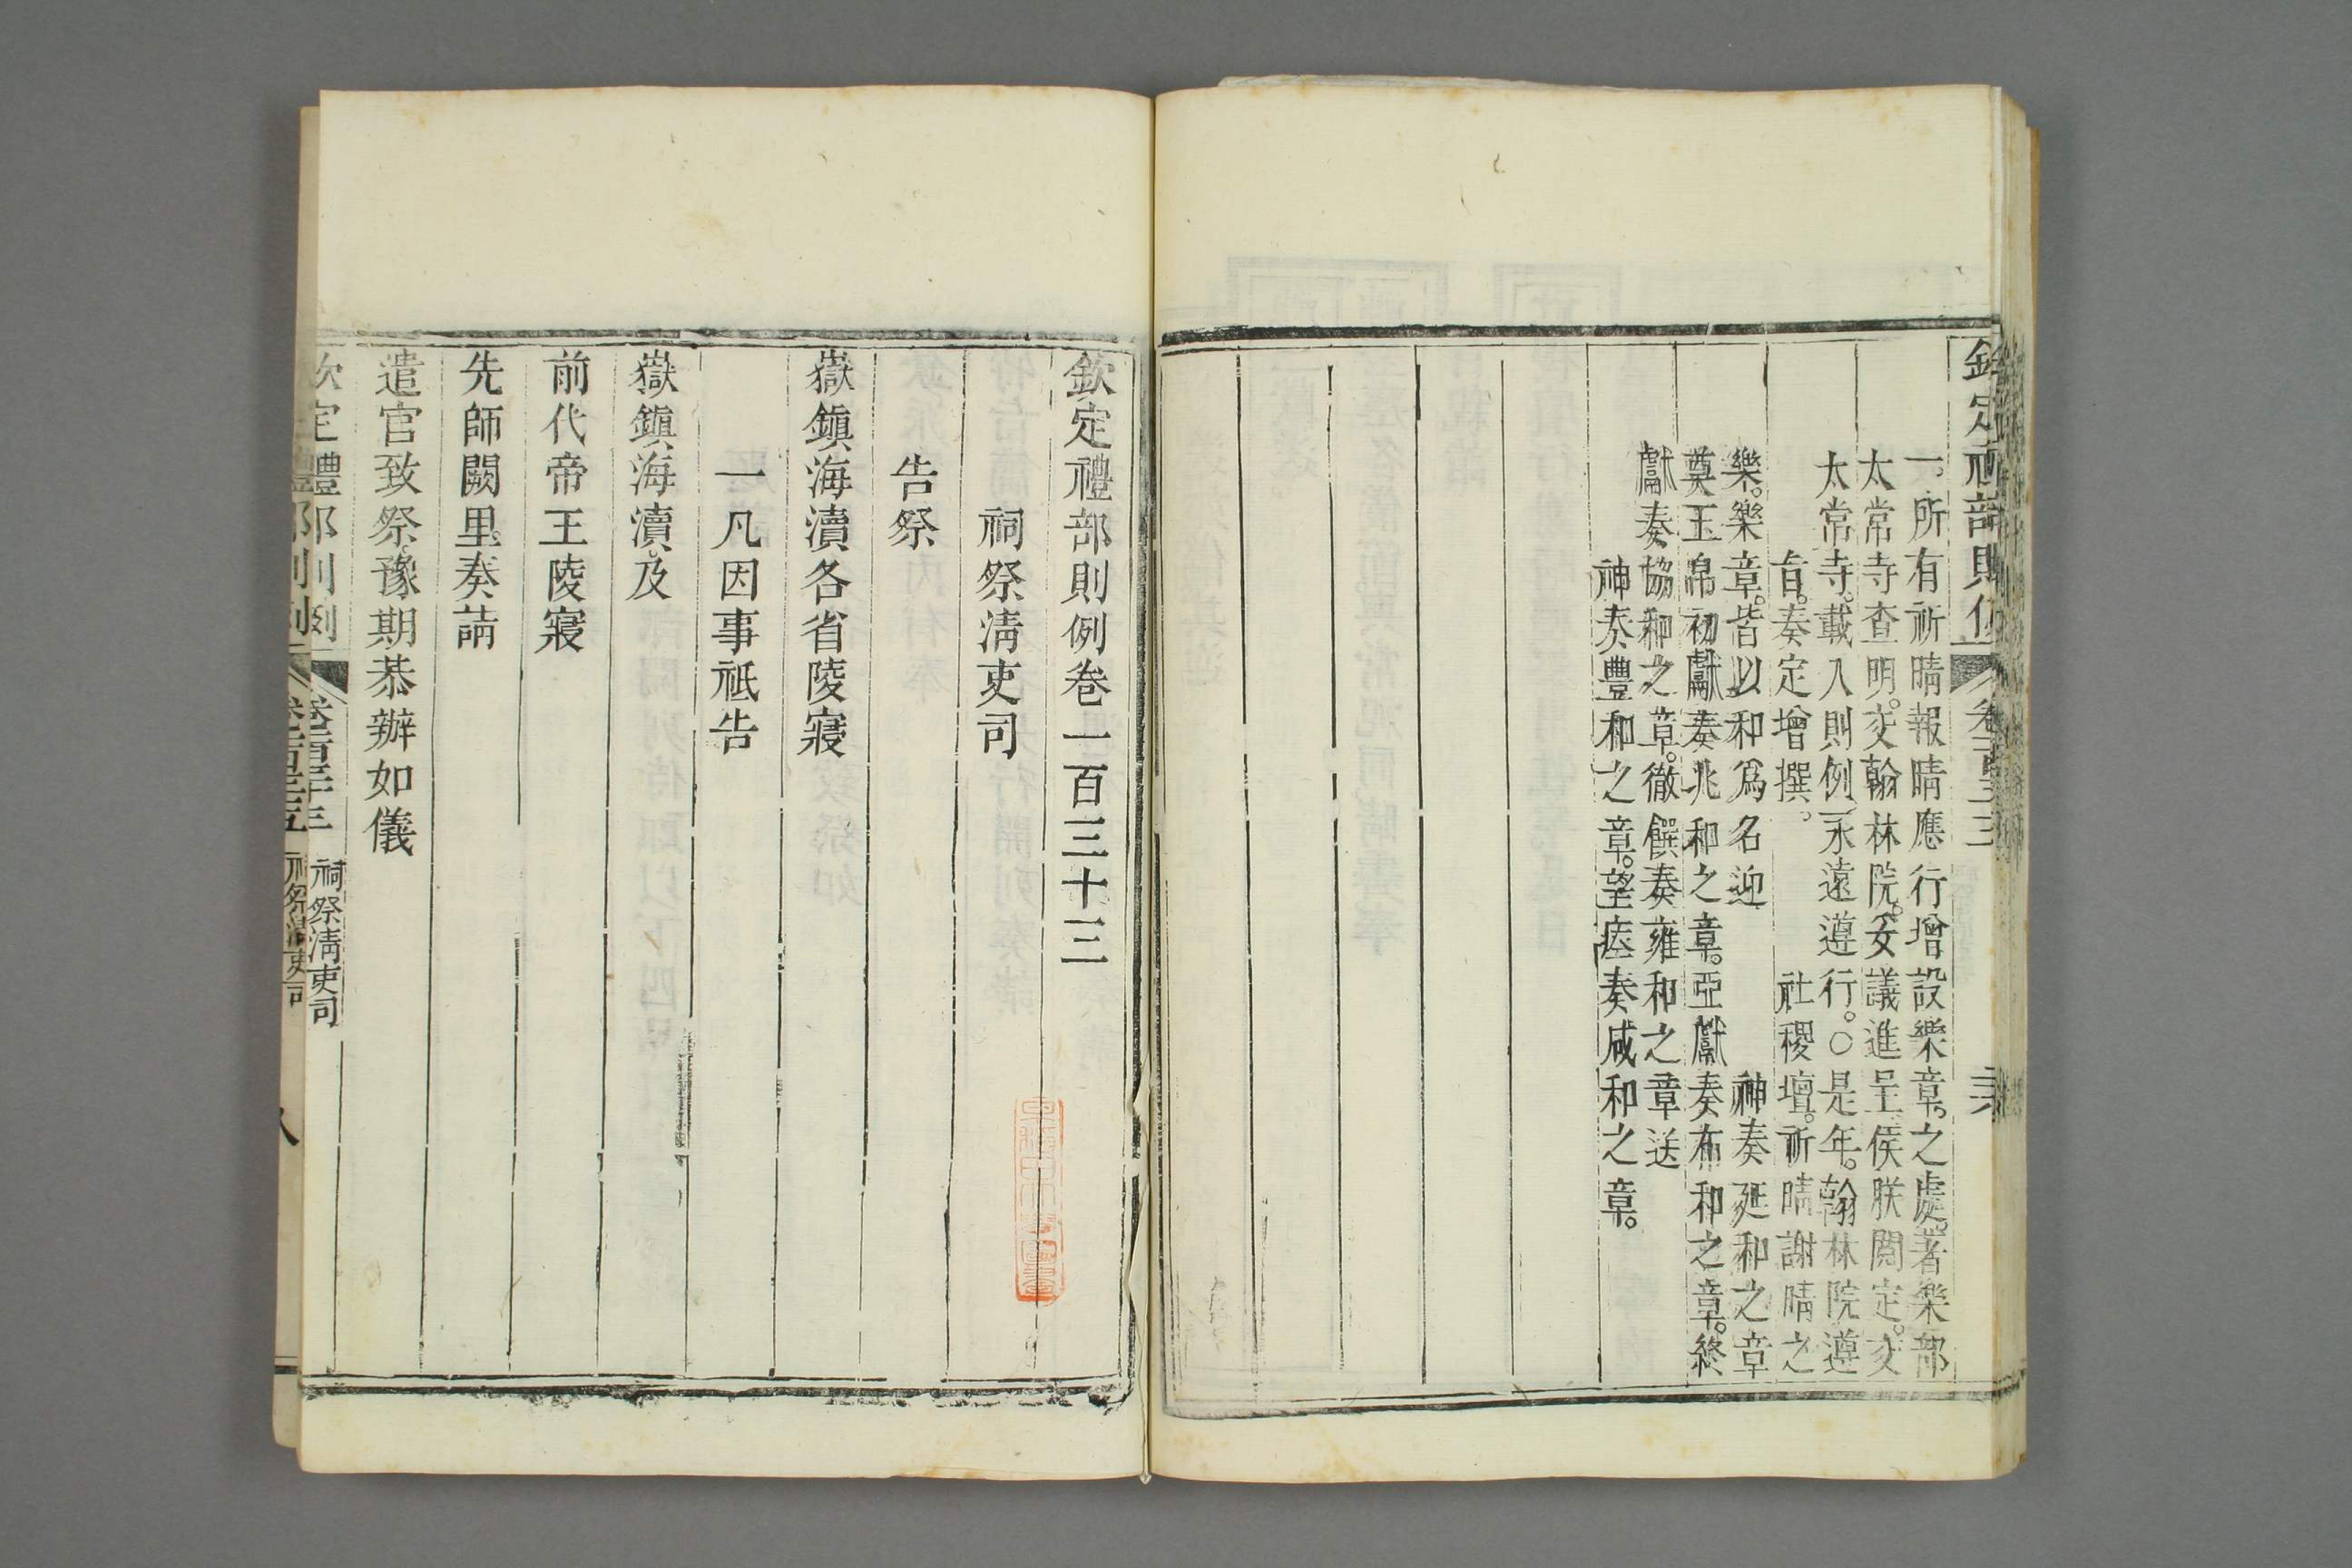 一。所有祈晴報晴應行增設樂章。之處。著樂部
太常寺查明。交翰林院。妥議進呈侯朕閱定。交
太常寺。載入則例。永遠遵行。○是年。翰林院遵
旨。奏定增撰。社稷壇。祈晴謝晴之
樂。樂章。皆以和為名迎神奏延和之章
奠玉帛初獻奏兆和之章。亞獻奏布和之章。終
獻奏協和之章。徹饌奏雍和之章送
神奏豐和之章。望瘞奏咸和之章。
欽定禮部則例卷一百三十三
祠祭清吏司
告祭
嶽鎮海瀆各省陵寢
一凡因事祇告
嶽鎮海瀆。及
前代帝王陵寢
先師闕里奏請
遣官致祭。豫期恭辦如儀
定禮部則例
卷一百三十三
祠祭清吏司